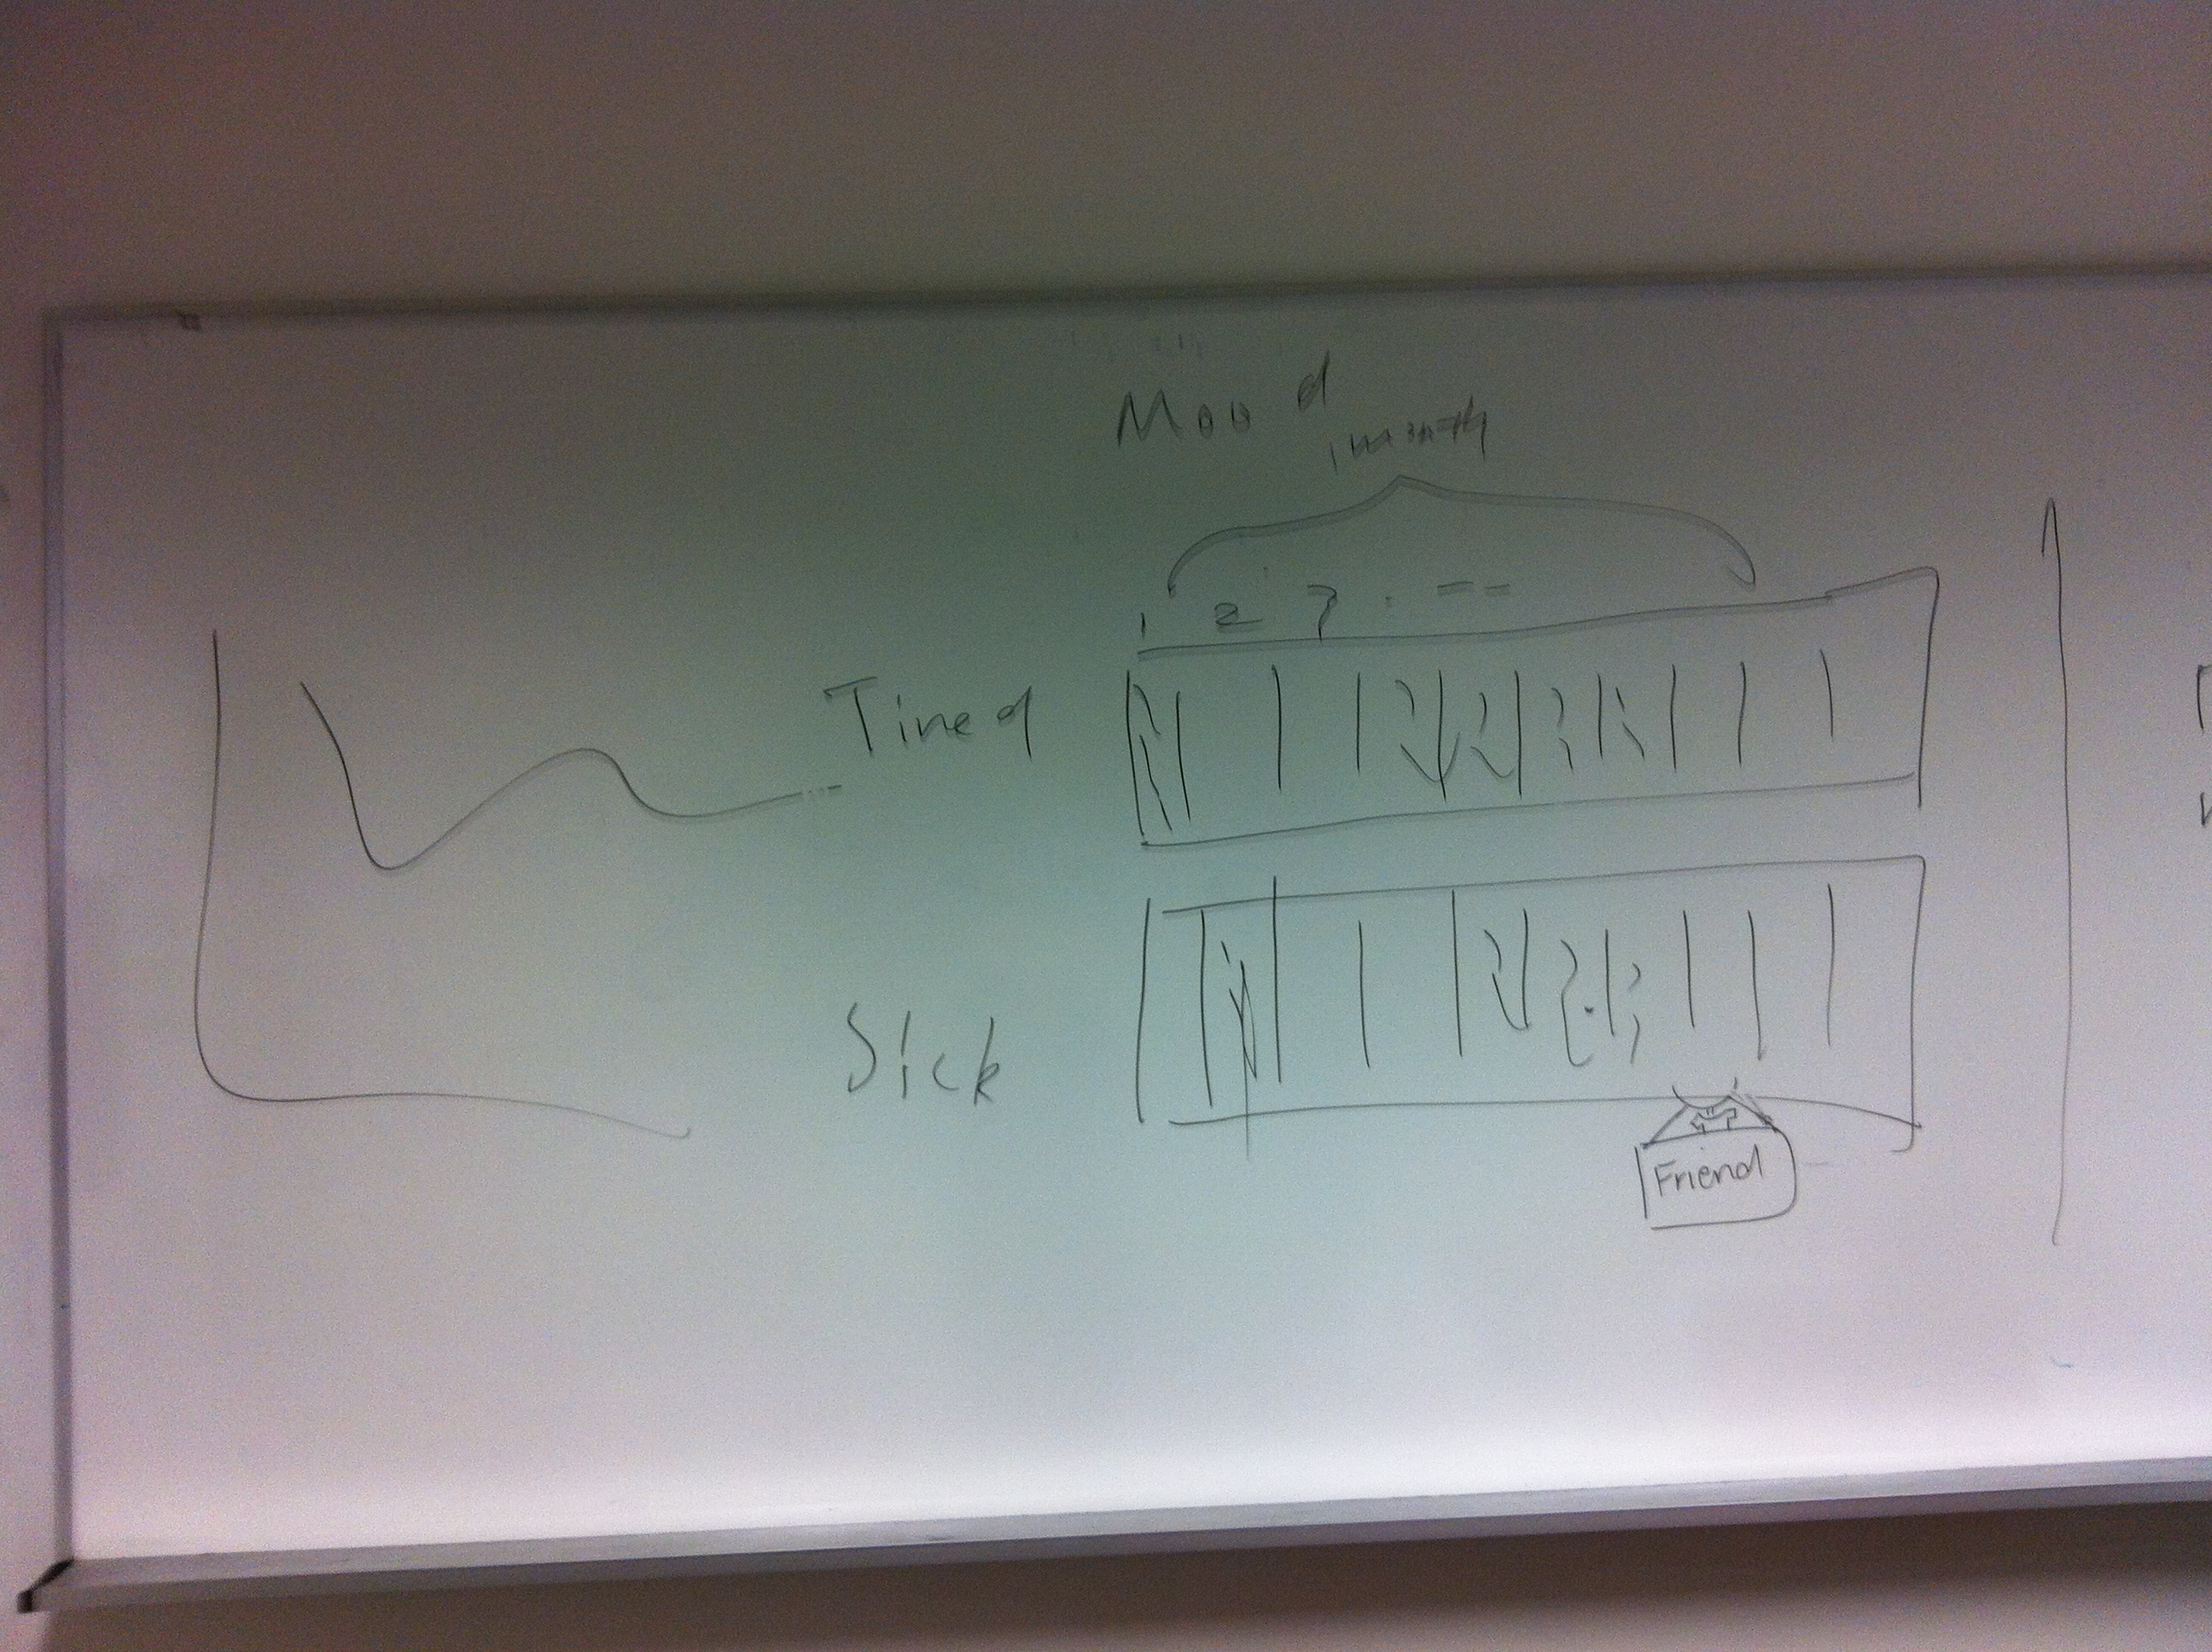 Mood
1 month
1 2 3 . --
Tired
Sick
Friend